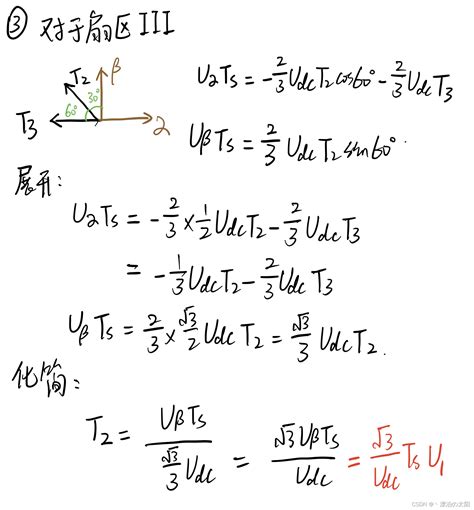 ③ 对于扇区III
T₂ β
60° 30°
T₃ 2
U₂Ts = -2/3 Udc T₂ cos60° - 2/3 Udc T₃
UβTs = 2/3 Udc T₂ sin60°.
展开:
U₂Ts = -2/3 × 1/2 Udc T₂ - 2/3 Udc T₃
= -1/3 Udc T₂ - 2/3 Udc T₃
Uβ Ts = 2/3 × √3/2 Udc T₂ = √3/3 Udc T₂.
化简:
T₂ = UβTs / (√3/3 Udc) = √3 UβTs / Udc = √3/Udc Ts U₁